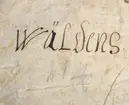 wäLdens